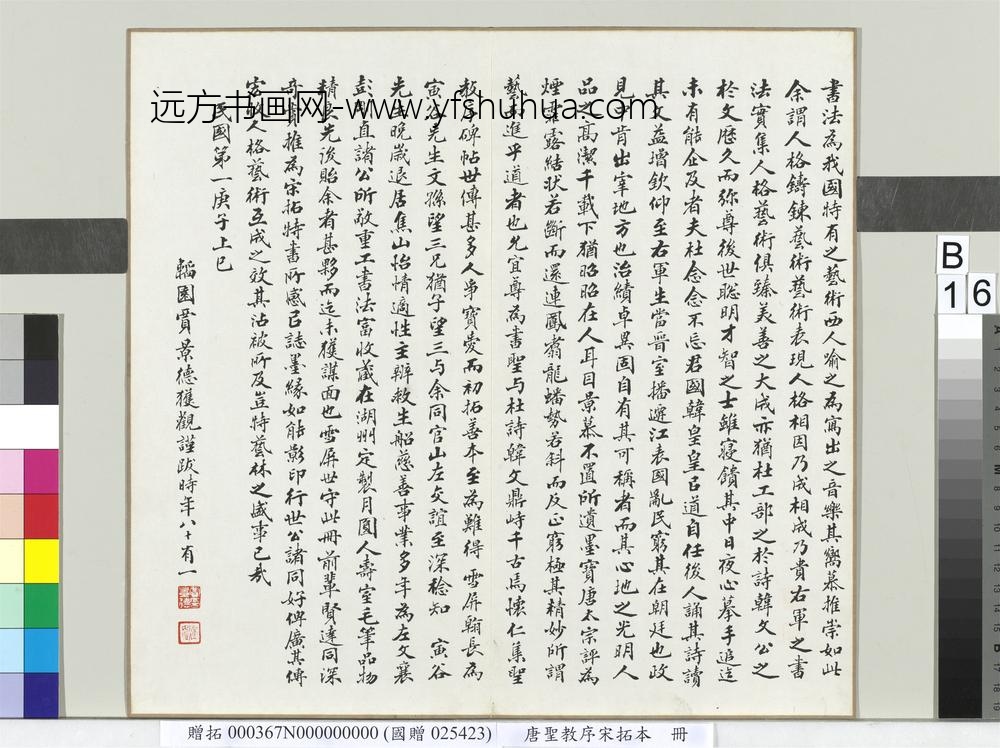 書法為我國特有之藝術西人喻之為寫出之音樂其嚮慕推崇如此
余謂人格鑄錬藝術藝術表現人格相因乃成相成乃貴右軍之書
法實集人格藝術俱臻美善之大成亦猶杜工部之於詩韓文公之
於文歷久而弥尊後世聡明才智之士雖寝饋其中日夜心摹手追迄
未有能企及者夫杜念念不忘君國韓皇皇以道自任後人誦其詩讀
其文益增欽仰至右軍生當晋室播遷江表國亂民窮其在朝廷也政
見中肯出宰地方也治績卓異固自有其可稱者而其心地之光明人
品之高潔千載下猶昭昭在人耳目景慕不置所遺墨寶唐太宗評為
煙霏露結狀若斷而還連鳳翥龍蟠勢若斜而反正窮極其精妙所謂
藝而進乎道者也允宜尊為書聖与杜詩韓文鼎峙千古焉懷仁集聖
教序碑帖世傳甚多人爭寶愛而初拓善本至為難得 雪屏翰長為
寅谷先生文孫望三兄猶子望三与余同官山左交誼至深稔知 寅谷
先生晚歲退居焦山怡情適性主辦救生船慈善事業多年為左文襄
彭剛直諸公所敬重工書法富收藏在湖州定製月圓人壽室毛筆品物
精良先後貽余者甚夥而迄未獲謀面也雪屏世守此冊前輩賢達同深
奇賞推為宋拓特書所感以誌墨緣如能影印行世公諸同好俾廣其傳
宏收人格藝術互成之效其沾被所及豈特藝林之盛事已哉
民國第一庚子上巳
韜園賈景德獲觀謹跋時年八十有一
远方书画网-www.yfshuhua.com
B
16
贈拓 000367N000000000 (國贈 025423) 唐聖教序宋拓本 冊